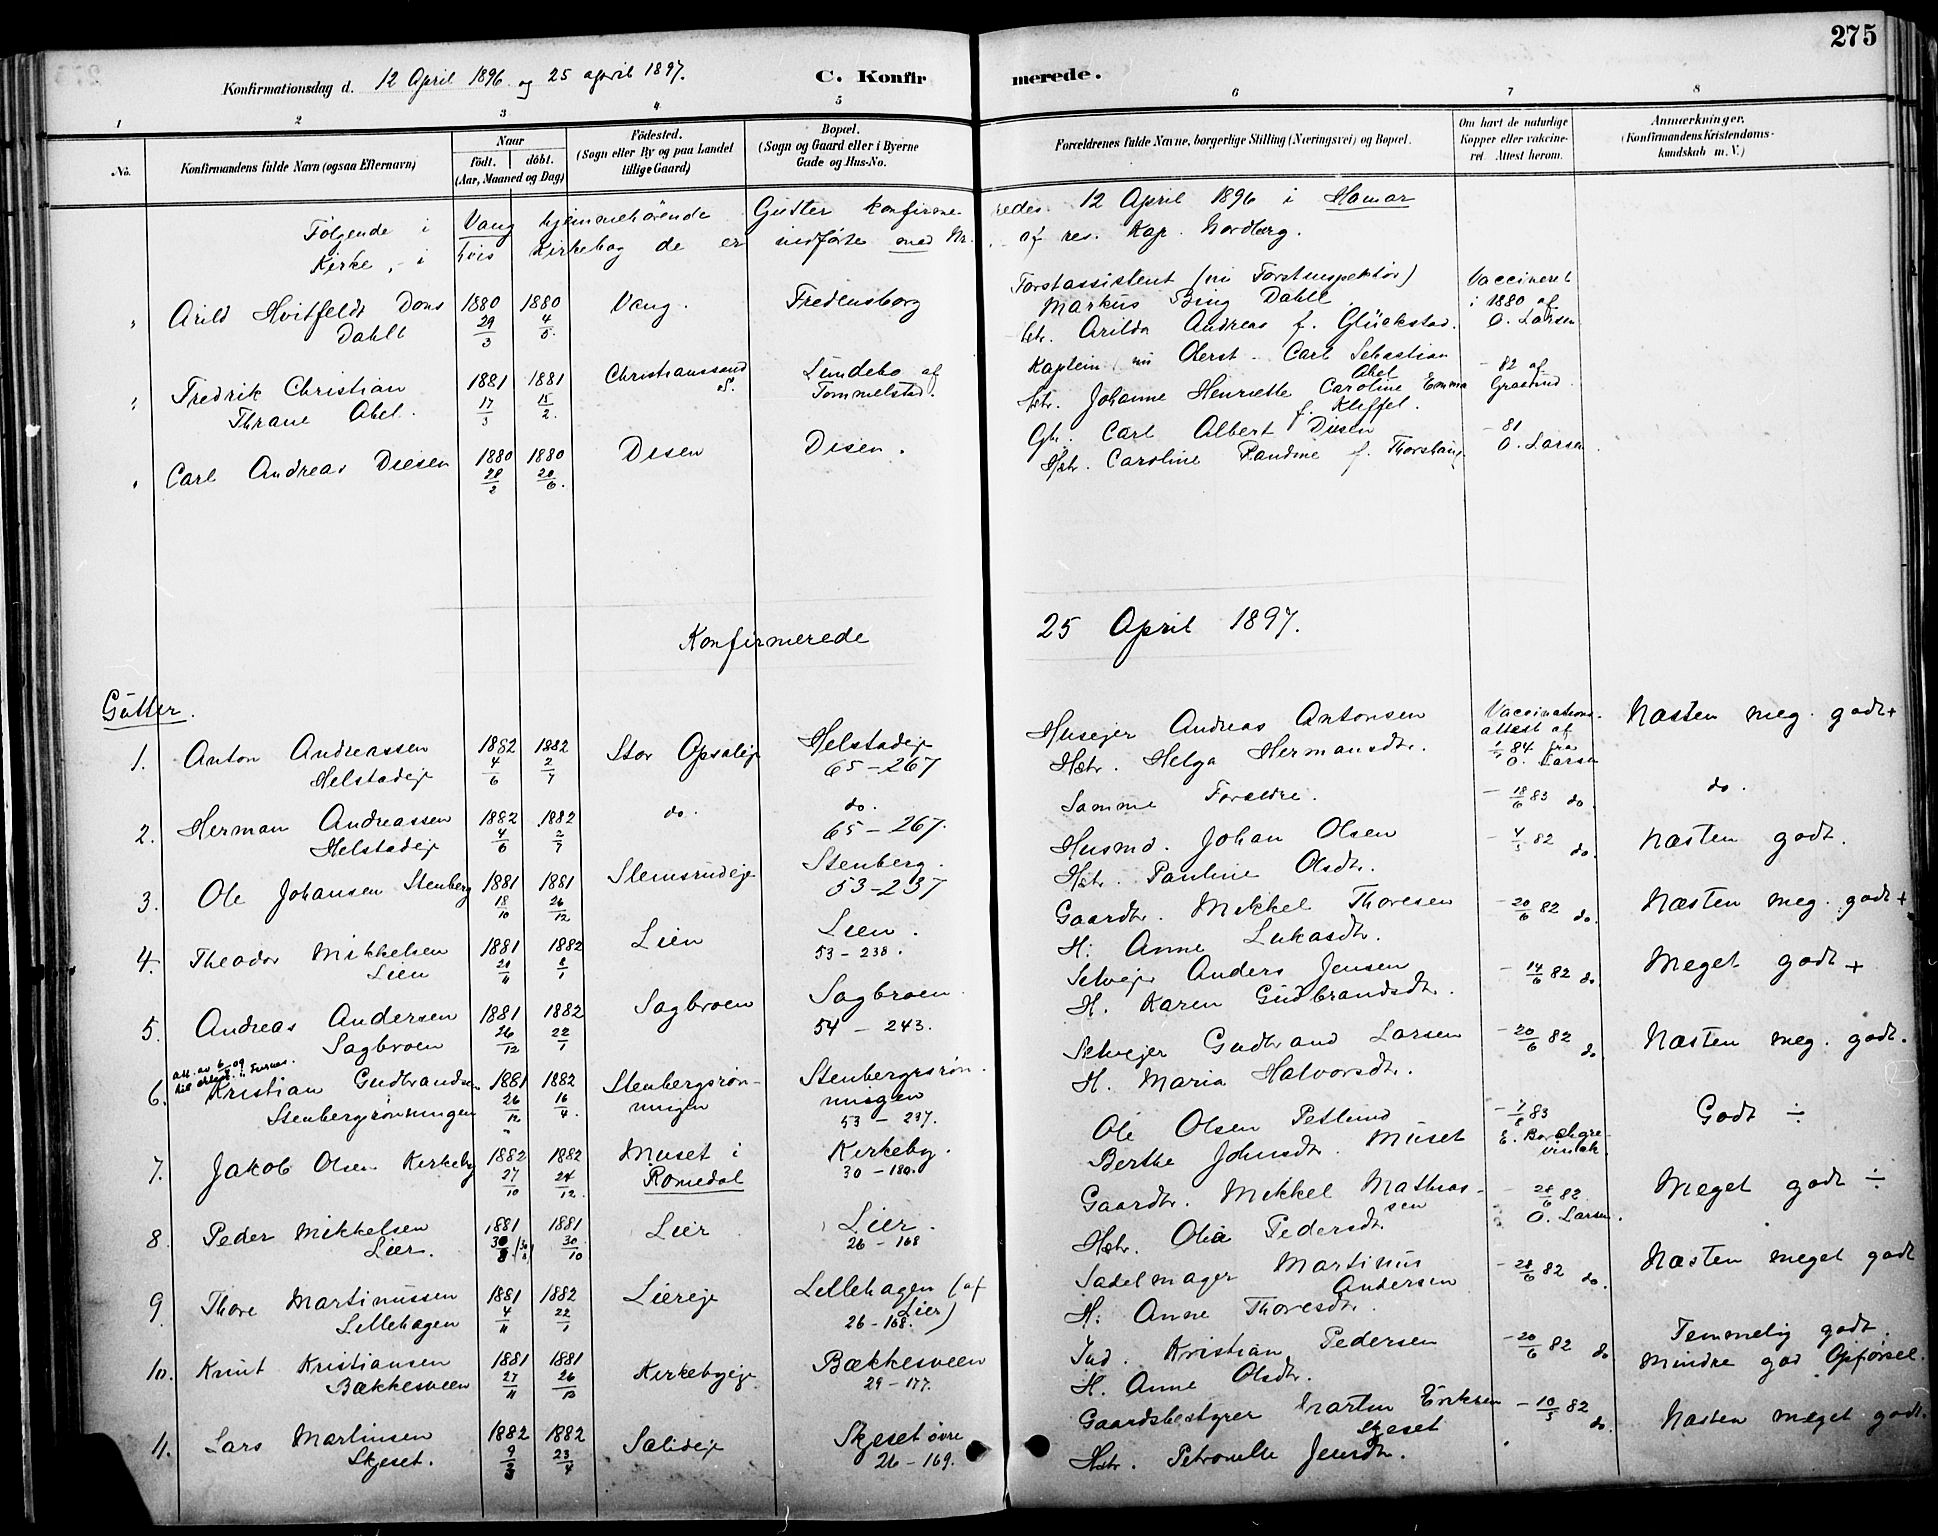 275
Konfirmationsdag d. 12 April 1896 og 25 april 1897.
C. Konfirmerede.
1 2 3 4 5 6 7 8
No.
Konfirmandens fulde Navn (ogsaa Efternavn)
Naar
födt. döbt.
(Aar, Maaned og Dag)
Födested.
(Sogn eller By og paa Landet
tillige Gaard)
Bopæl.
(Sogn og Gaard eller i Byerne
Gade og Hus-No.
Forældrenes fulde Navne, borgerlige Stilling (Næringsvei) og Bopæl.
Om havt de naturlige
Kopper eller vaccine-
ret. Attest herom.
Anmærkninger.
(Konfirmandens Kristendoms-
kundskab m. V.)
Følgende i Vang hjemmehørende Gutter konfirmeredes 12 April 1896 i Hamar
Kirke, i hvis Kirkebog de er indførte med Nr. af res. Kap. Nordberg.
Arild Hvitfeldt Dons 1880 1880 Vang. Fredensborg Forstassistent (nu Forstinspektør) Vaccineret
Dahll 29/3 4/5 Markus Bing Dahll i 1880 af
Arilda Andrea f. Glückstad. O. Larsen
Fredrik Christian 1881 1881 Christianssand Lundebo af Kaptein nu Oberst Carl Sebastian - 82 af
Thrane Abel. 17/3 15/2 S. Tommelstad. Abel
Htr. Johanne Henriette Caroline Emma
f. Kleffel.
Carl Andreas Diesen 1880 1880 Disen Disen. Gbr. Carl Albert Diesen - 81
28/2 20/6 Hstr. Caroline Randine f. O. Larsen
Konfirmerede 25 April 1897.
Gutter.
1. Anton Andreassen 1882 1882 Stor Opsaleje Helstadeje Husejer Andreas Antonsen Vaccinations- Næsten meg. godt+
Helstadeje 4/6 2/7 65-267 Hstr. Helga Hermansdtr. attest af
84 fra
O. Larsen
2. Herman Andreassen 1882 1882 do. do. Samme Forældre. - 18/6 83 do. do.
Helstadeje 4/6 2/7 65-267.
3. Ole Johansen Stenberg 1881 1881 Slemsrudeje Stenberg. Husmd. Johan Olsen - 4/5 82 do. Næsten godt.
18/10 26/12 53-237 Hstr. Pauline Olsdtr.
4. Theodor Mikkelsen 1881 1882 Lien Lien. Gaardbr. Mikkel Thoresen - 20/6 82 do. Næsten meg. godt+
Lien 8/1 53-238. H. Anne Lukasdtr.
5. Andreas Andersen 1881 1882 Sagbroen Sagbroen. Selvejer Anders Jensen - 14/6 82 do. Meget godt +
Sagbroen 26/12 22/1 54-243. H. Karen Gudbrandsdtr.
att. av 6/6 09
til ar i Furnes.
6. Kristian Gudbrandsen 1881 1882 Stenbergsrøn- Stenbergsrøn- Selvejer Gudbrand Larsen - 20/6 82 do Næsten meg. godt.
Stenbergsrønningen 26/12 16/4. ningen ningen H. Maria Halvorsdtr.
53-237.
7. Jakob Olsen Kirkeby 1882 1882 Muset i Kirkeby. Ole Olsen Petlund - 7/6 83 Godt ÷
27/10 24/12. Romedal 30-180. Berthe Johnsdtr. Muset
8. Peder Mikkelsen 1881 1881 Lier Lier. Gaardbr. Mikkel Mathias- - 28/6 82. Meget godt ÷
Lier. 30/8 30/10 26-168 sen O. Larsen.
Hstr. Olia Pedersdtr.
9. Thore Martinussen 1881 1882 Liereje Lillehagen (af Sadelmager Martinus - 28/6 82 do. Næsten meget godt
Lillehagen 4/11 22/1 Lier) Andersen
26-168. H. Anne Thoresdtr.
10. Knut Kristiansen 1881 1881 Kirkebyeje Bækkesveen Ind. Kristian Pedersen - 20/6 82 do Temmelig godt.
Bækkesveen 27/11 26/12 29-177. H. Anne Olsdtr. Mindre god Opførsel.
11. Lars Martinsen 1882 1882 Salideje Skjeset øvre Gaardsbestyrer Martin Eriksen - 10/5 82 do. Næsten meget godt.
Skjeset. 9/2 23/4 26-169. Skjeset
Hstr. Petronelle Jensdtr.